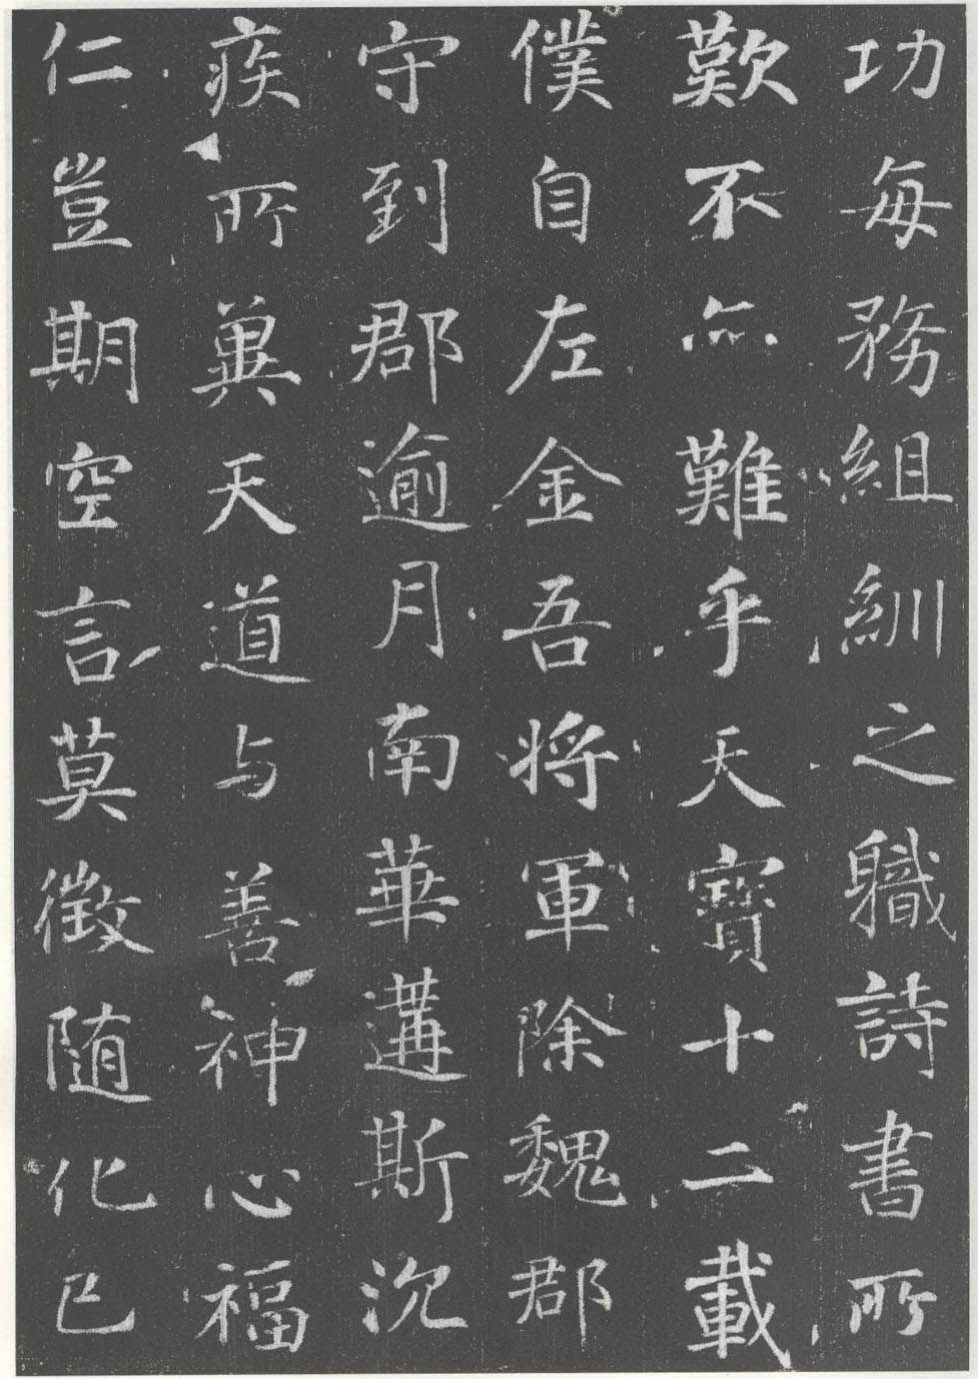 功每務組紃之職詩書所
歎不亦難乎天寶十二載
僕自左金吾將軍除魏郡
守到郡逾月南華遘斯沉
疾所冀天道与善神心福
仁豈期空言莫徵随化已